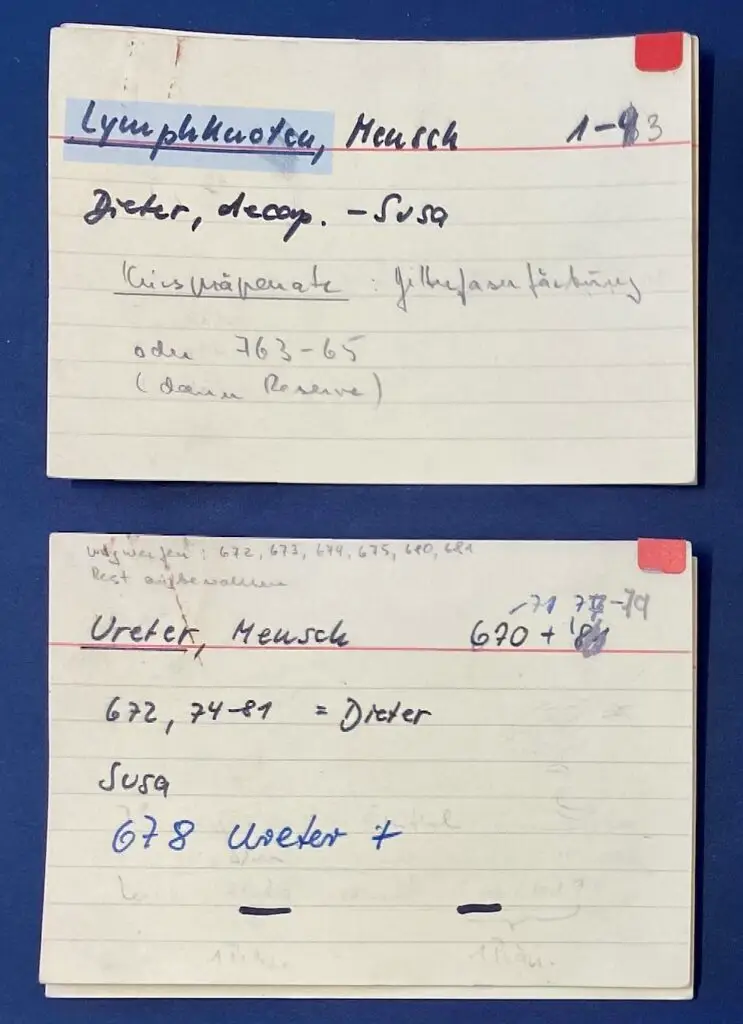 Lymphknoten, Mensch 1-3
Dieter, decap. - Susa
Kurspräparate : Gitterfaserfärbung
oder 763-65
(dann Reserve)
wegwerfen : 672, 673, 674, 675, 680, 681
Rest aufbewahren
-71 78-79
Ureter, Mensch 670 +
672, 74-81 = Dieter
Susa
678 Ureter +